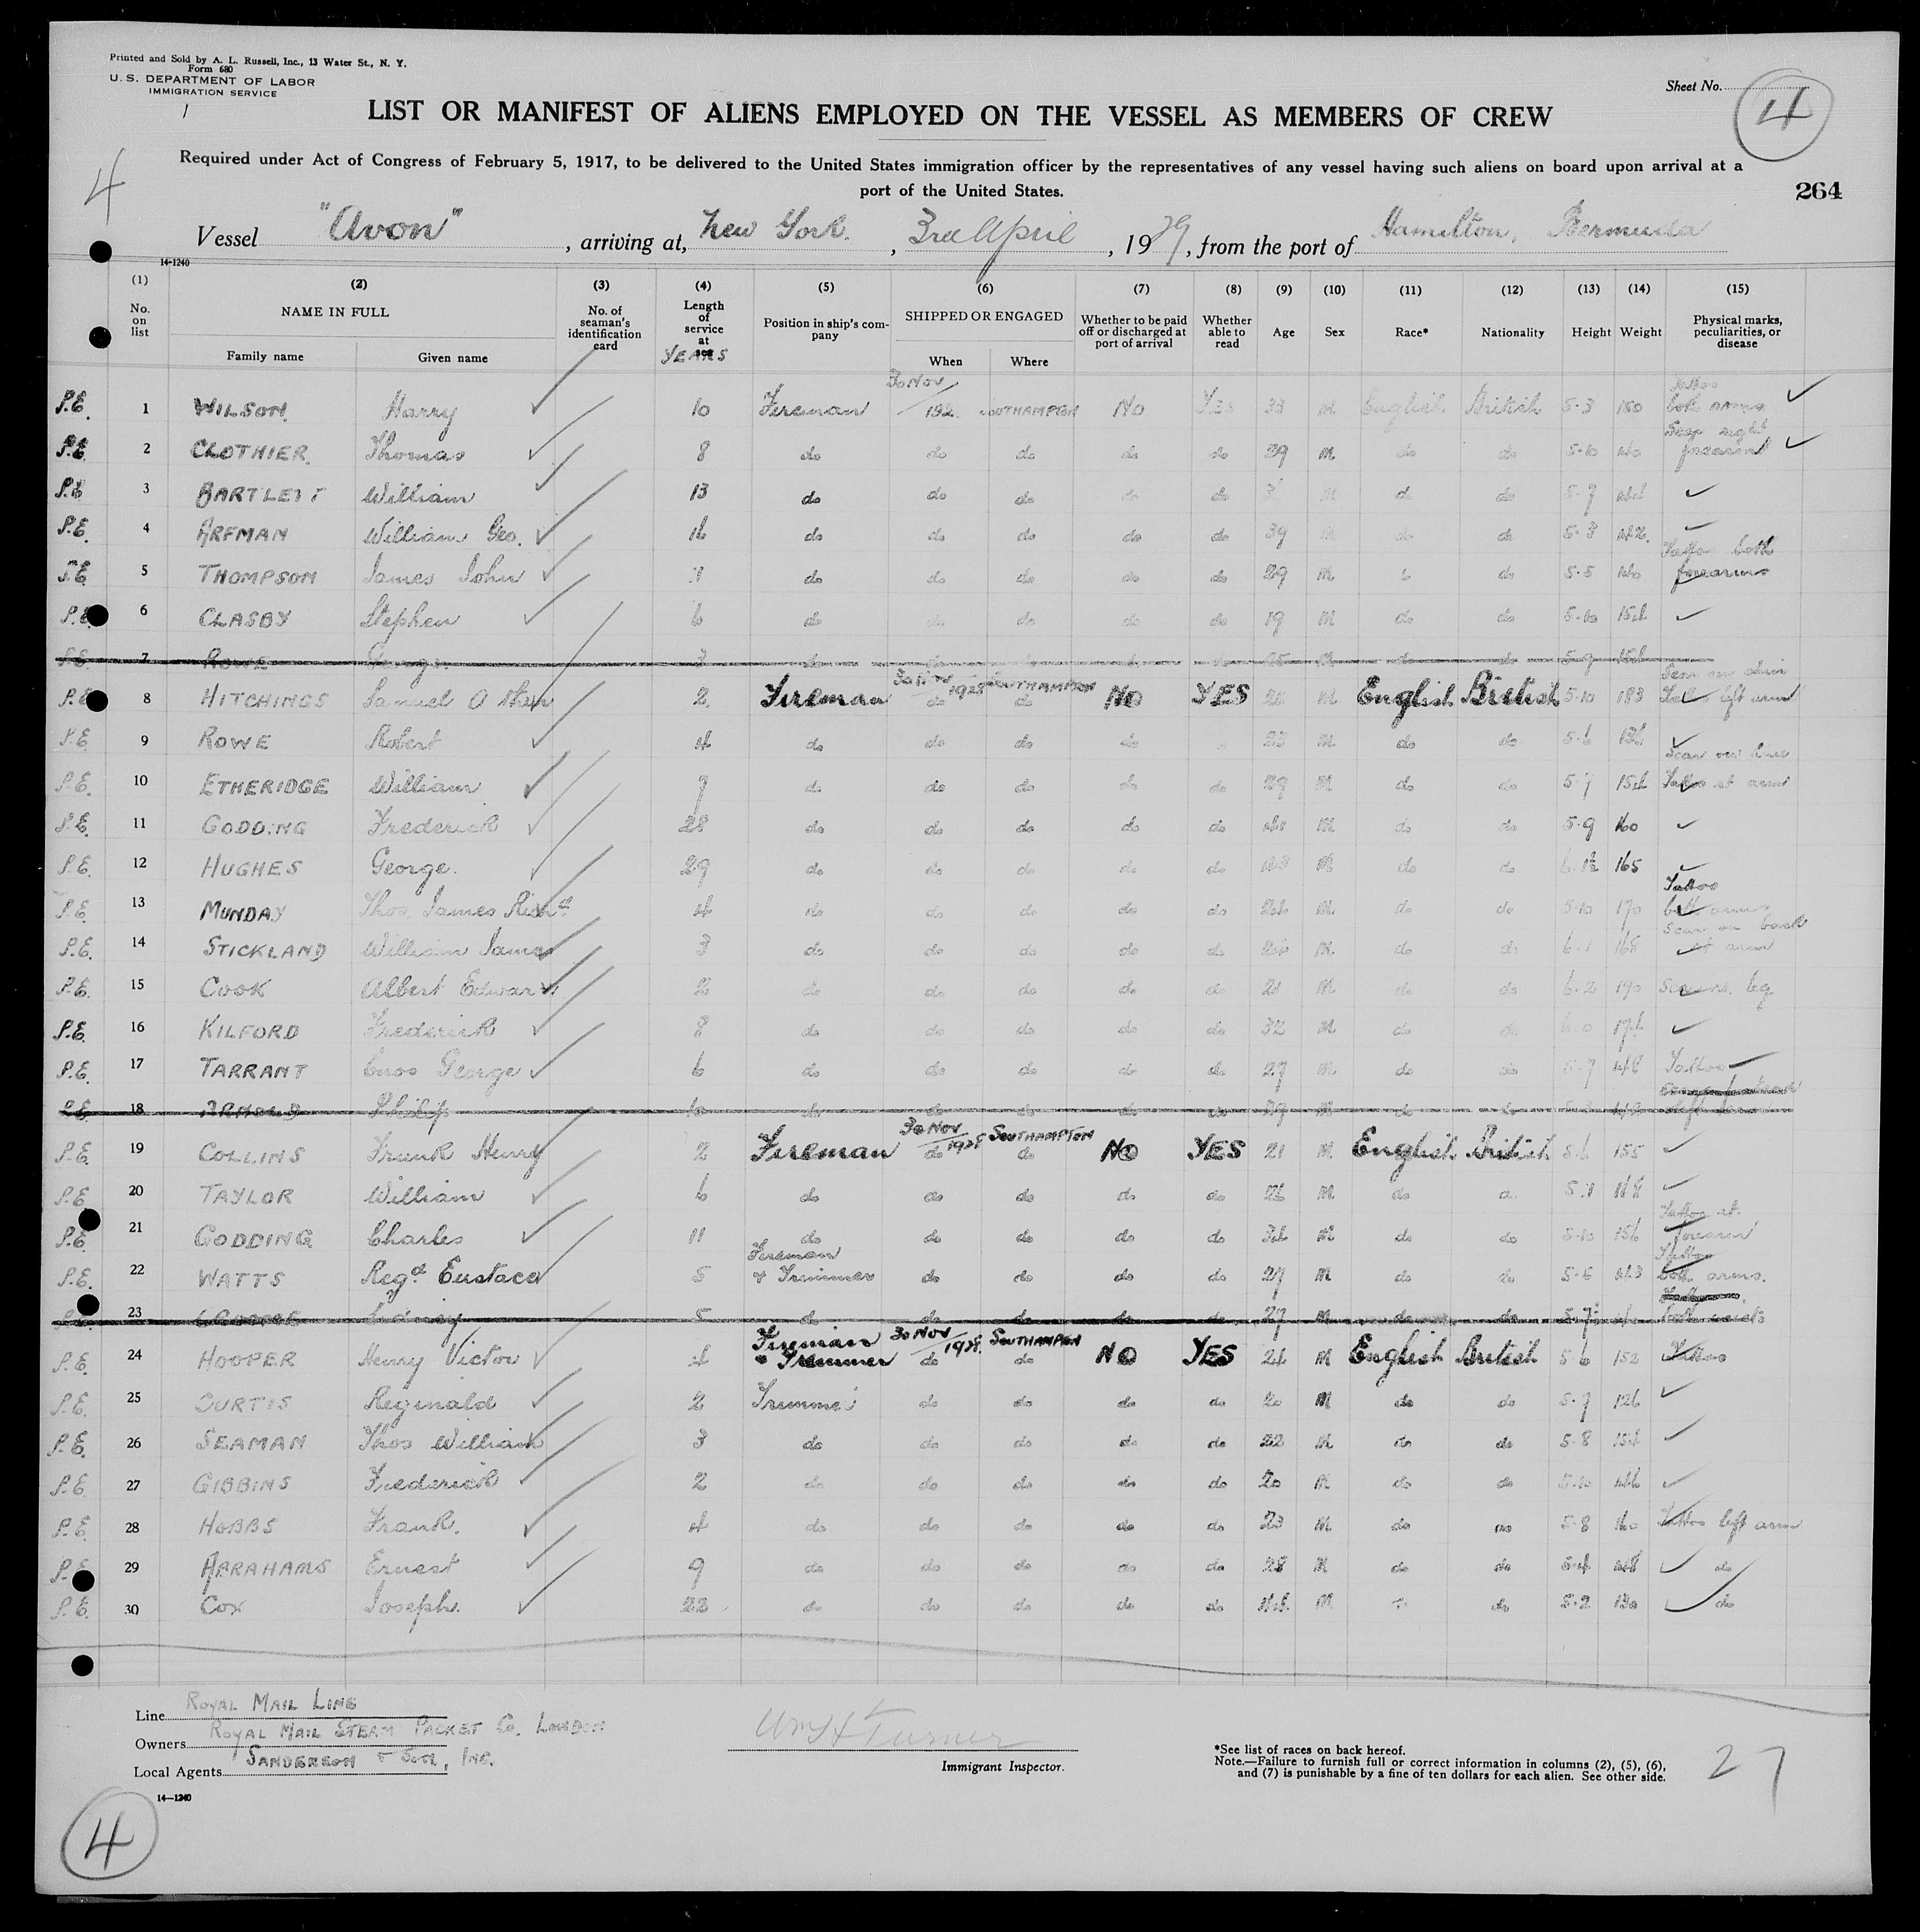 Printed and Sold by A. L. Russell, Inc., 13 Water St., N. Y.
Form 680
U. S. DEPARTMENT OF LABOR
IMMIGRATION SERVICE
Sheet No. 4
LIST OR MANIFEST OF ALIENS EMPLOYED ON THE VESSEL AS MEMBERS OF CREW
Required under Act of Congress of February 5, 1917, to be delivered to the United States immigration officer by the representatives of any vessel having such aliens on board upon arrival at a
port of the United States.
4
264
Vessel "Avon", arriving at, New York, 3rd April, 1929, from the port of Hamilton, Bermuda
14-1240
(1) (2) (3) (4) (5) (6) (7) (8) (9) (10) (11) (12) (13) (14) (15)
No. on list NAME IN FULL Family name Given name No. of seaman's identification card Length of service at sea YEARS Position in ship's company SHIPPED OR ENGAGED When Where Whether to be paid off or discharged at port of arrival Whether able to read Age Sex Race* Nationality Height Weight Physical marks, peculiarities, or disease
P.E. 1 WILSON Harry 10 Fireman 30 Nov 192 SOUTHAMPTON No Yes M English British 5-3 Tattoo both arms
P.E. 2 CLOTHIER Thomas 8 do do do do do 29 M do do 5-10 Scar right forearm
P.E. 3 BARTLETT William 13 do do do do do M do 5-7
P.E. 4 ARFMAN William Geo. do do do do do 39 do do
P.E. 5 THOMPSON James John do do do do do 29 M do 5-5 Tattoo both forearms
P.E. 6 CLASBY Stephen 6 do do do do do 19 M do do 5-10 154
P.E. 7 ROWE George do do do do do M do do 5-9
P.E. 8 HITCHINGS Samuel 2 Fireman 30 Nov 1928 SOUTHAMPTON NO YES M English British 5-10 183 Scar on chin left arm
P.E. 9 ROWE Robert 4 do do do do 23 M do do 5-6
P.E. 10 ETHERIDGE William 9 do do do do do 29 M do do 5-7 154 Tattoo rt arm
P.E. 11 GODDING Frederick 28 do do do do do M do do 5-9 160
P.E. 12 HUGHES George. 29 do do do do do M do do 165
P.E. 13 MUNDAY Thos. James Richd 4 do do do do do M do do 5-10 170 Tattoo both arms
P.E. 14 STICKLAND William James 3 do do do do do 26 M do do 6-1 168 Scar on back rt arm
P.E. 15 COOK Albert Edward 2 do do do do do 21 M do do 6-2 190 leg
P.E. 16 KILFORD Frederick 8 do do do do do 32 M do do 6-0
P.E. 17 TARRANT Enos George 6 do do do do do 27 M do do 5-7 148 Tattoo
P.E. 18 ARNOLD Philip 10 do do do do do 29 M do do
P.E. 19 COLLINS Frank Henry 2 Fireman 30 Nov 1928 SOUTHAMPTON NO YES 21 M English British 5-6 155
P.E. 20 TAYLOR William 6 do do do do do 26 M do do
P.E. 21 GODDING Charles 11 do do do do do 34 M do do 5-10 156 Tattoo rt. forearm
P.E. 22 WATTS Regd Eustace 5 Fireman & Trimmer do do do do 27 M do do 5-6 Tattoo both arms.
P.E. 23 Sidney 5 do do do do do 27 M do do both wrists
P.E. 24 HOOPER Henry Victor 4 Fireman & Trimmer 30 Nov 1928 SOUTHAMPTON NO YES 24 M English British 5-6 152 Tattoo
P.E. 25 CURTIS Reginald 2 Trimmer do do do do 20 M do do 5-7 126
P.E. 26 SEAMAN Thos William 3 do do do do do 22 M do do 5-8 154
P.E. 27 GIBBINS Frederick 2 do do do do do 20 M do do 5-10
P.E. 28 HOBBS Frank. 4 do do do do do 23 M do do 5-8 160 Tattoo left arm
P.E. 29 ABRAHAMS Ernest 9 do do do do do 28 M do do 5-4 148 do
P.E. 30 COX Joseph. 22 do do do do do M do 5-2 130 do
Line ROYAL MAIL LINE
Owners ROYAL MAIL STEAM PACKET CO. LONDON
Local Agents SANDERSON & SON, INC.
Wm H Turner
Immigrant Inspector.
*See list of races on back hereof.
Note.—Failure to furnish full or correct information in columns (2), (5), (6),
and (7) is punishable by a fine of ten dollars for each alien. See other side.
27
14—1240
4